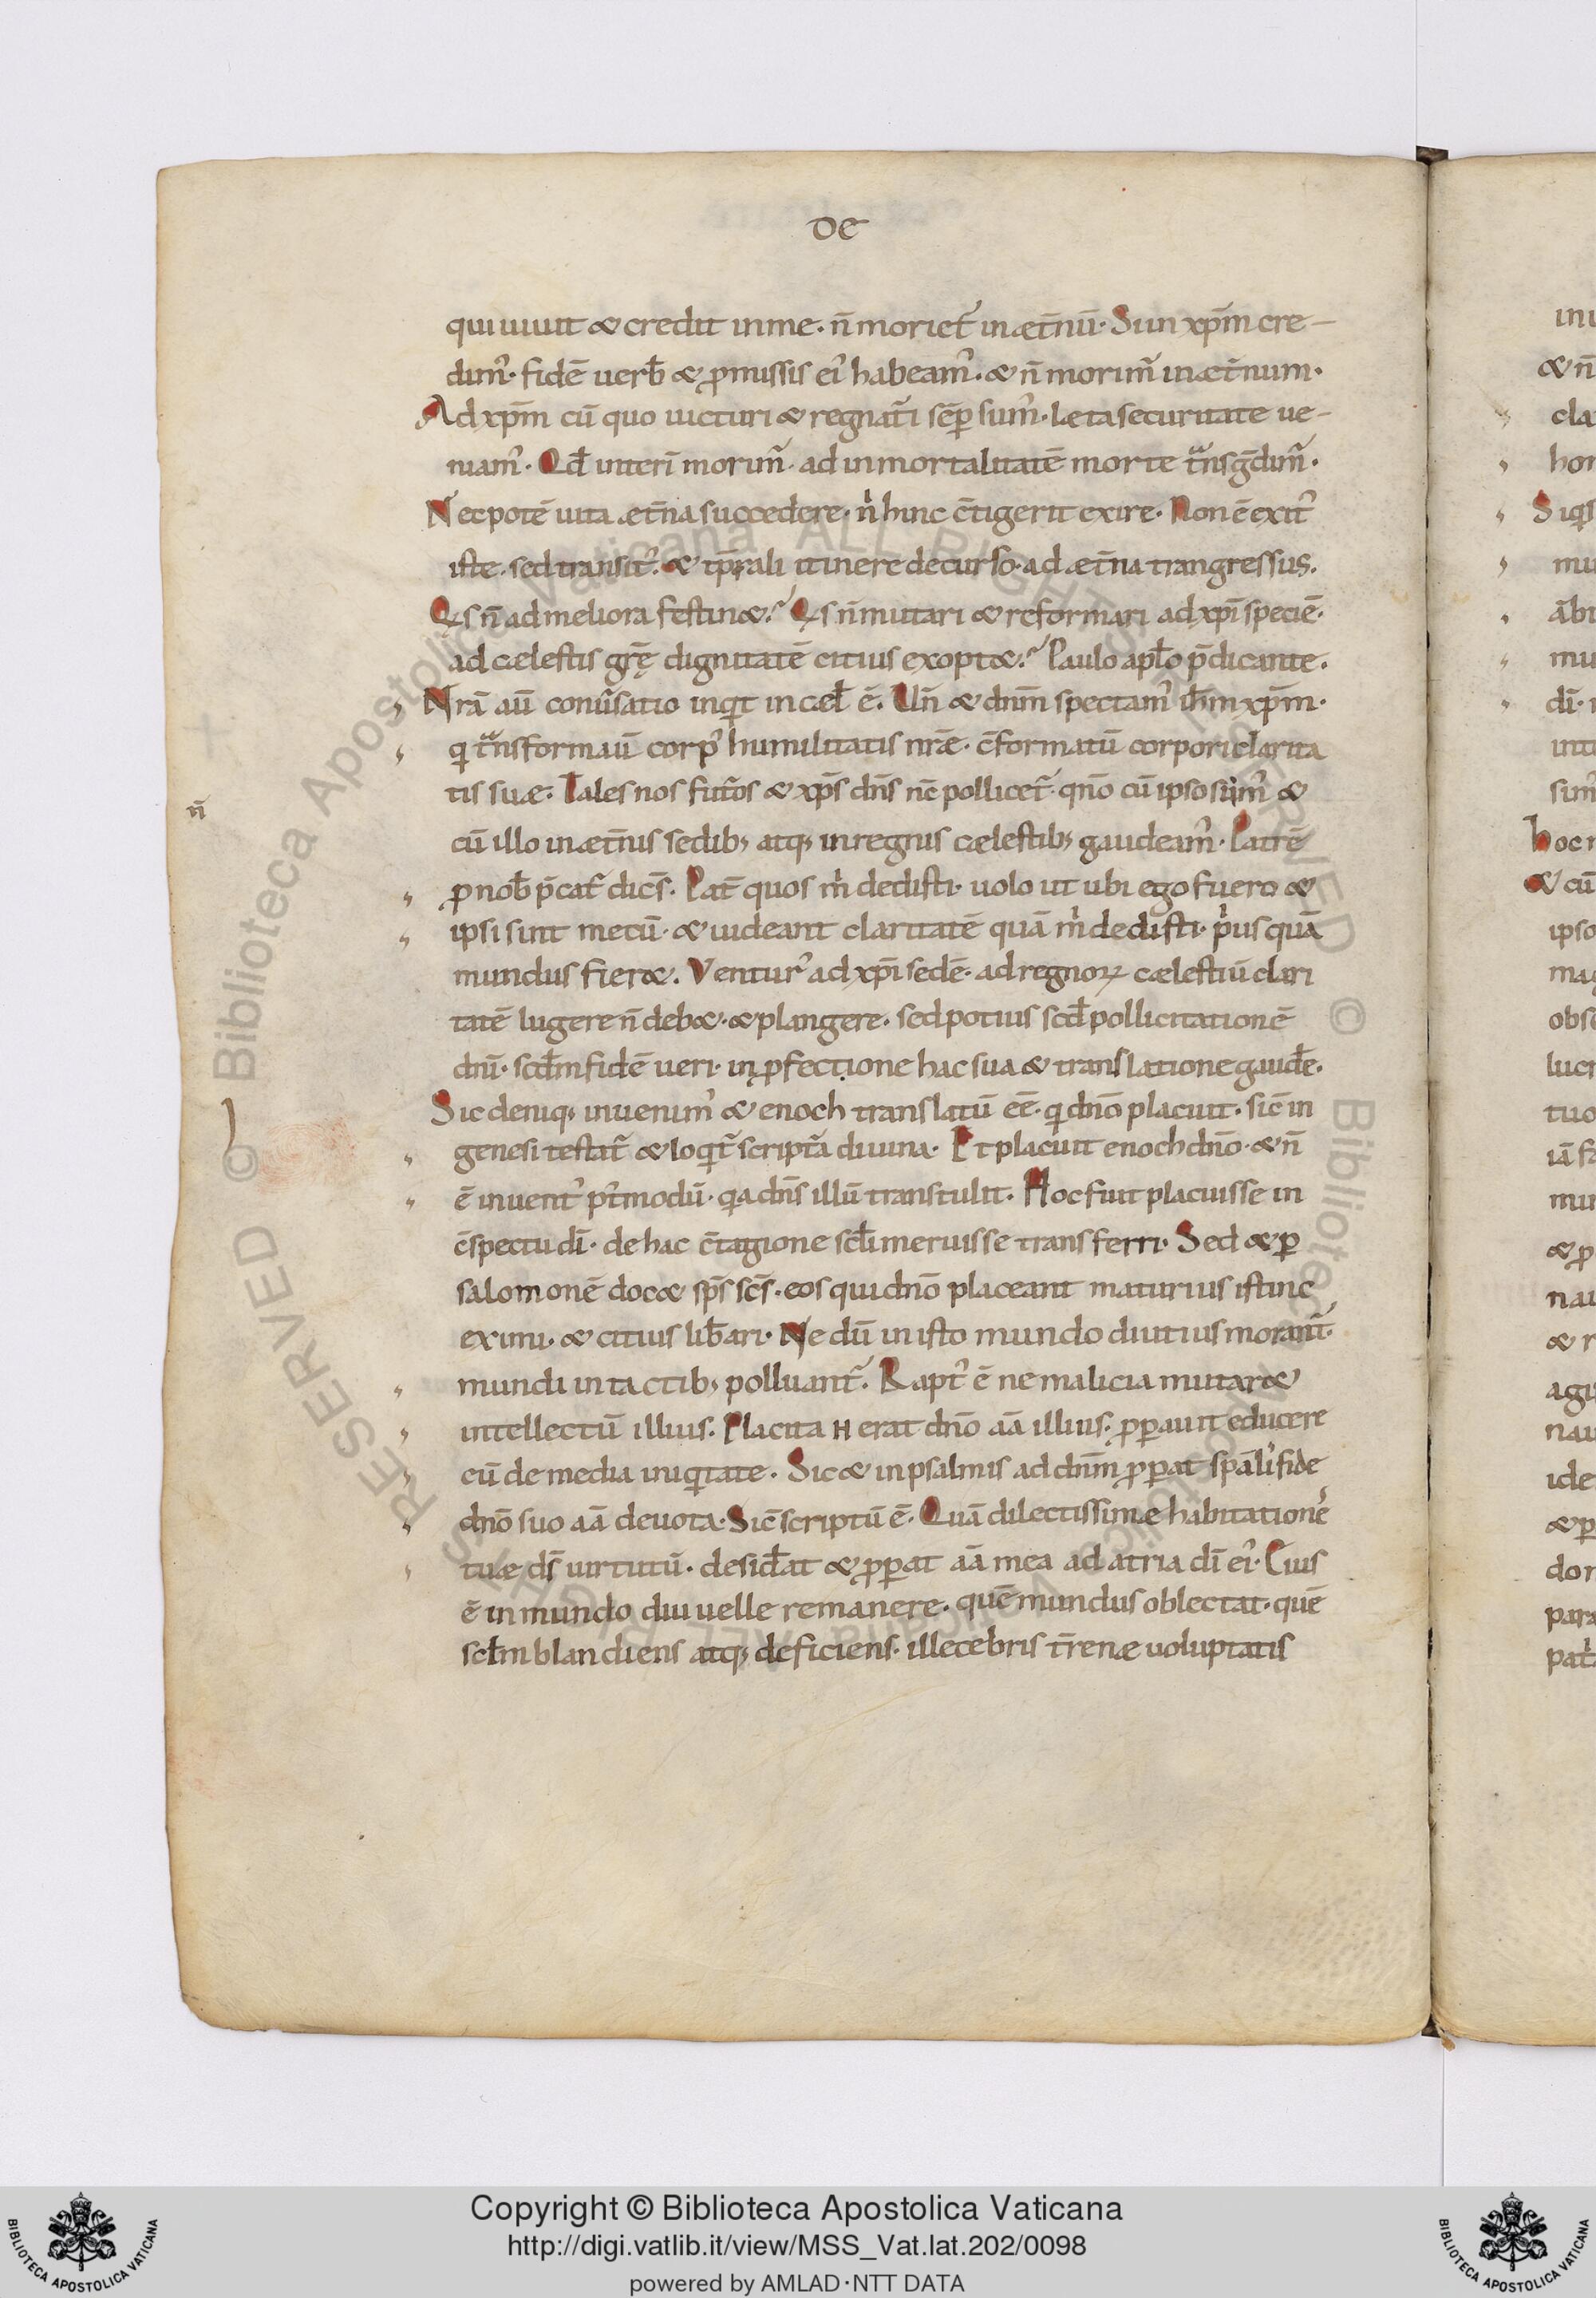 DE
qui uiuit & credit in me. n̄ moriet᷑ in æt̄nū. Si in xp̄m cre-
dim᾽. fidē uerb̄ & ꝓmissis ei᾽ habeam᾽. & n̄ morim᷑ in æt̄num.
Ad xp̄m cū quo uicturi & regnat᷑i sēꝑ sum᾽. læta securitate ue-
niam᾽. Qd̄ interī morim᷑. ad inmortalitatē morte tᷓnsḡdim᷑.
Nec potē uita æt̄na succedere. n̓ hinc c̄tigerit exire. Non ē exit᾽
iste. sed transit᾽. & tp̄rali itinere decurso. ad æt̄na trangressus.
Qͥs n̄ ad meliora festin&? Qͥs n̄ mutari & reformari ad xp̄i speciē.
ad cælestis gr̄ę dignitatē citius exopt&? Paulo apl̄o p̄dicante.
Nr̄a aū conūsatio inqͥt in cæl̄ ē. Un̄ & dn̄m spectam᾽ ih̄m xp̄m.
qͥ tᷓnsformauū corp᾽ humilitatis nr̄æ. c̄formatū corpori clarita
tis suæ. Tales nos fut᷑os & xp̄s dn̄s nc̄ pollicet᷑. qn̄o cū ipso sim᾽ &
n̄
cū illo in æt̄nis sedib; atq; in regnis cælestib; gaudeam᾽. Patrē
ꝓ nob̄ p̄cat᷑ dic̄s. Pat̄ quos m̓ dedisti. uolo ut ubi ego fuero &
ipsi sint mecū. & uideant claritatē quā m̓ dedisti. pͥus quā
mundus fier&. Ventur᾽ ad xp̄i sedē. ad regnoꝝ cælestiū clari
tatē lugere n̄ deb&. & plangere. sed potius scd̄ pollicitationē
dn̄i. scd̄m fidē ueri. in ꝓfectione hac sua & translatione gaudē.
Sic deniq; inuenim᾽ & enoch translatū eē. qͥ dn̄o placuit. sic̄ in
genesi testat᷑ & loqͥt᷑ script᷑a diuina. Et placuit enoch dn̄o. & n̄
ē inuent᾽ pt̄modū. qͥa dn̄s illū transtulit. Hoc fuit placuisse in
c̄spectu dī. de hac c̄tagione scl̄i meruisse transferri. Sed & ꝑ
salomonē doc& sp̄s sc̄s. eos qui dn̄o placeant maturius istinc
eximi. & citius lib̄ari. Ne dū in isto mundo diutius morant᷑.
mundi intactib; polluant᷑. Rapt᾽ ē ne malicia mutar&
intellectū illius. Placita H erat dn̄o aā illius. ꝓꝑauit educere
eū de media iniqͥtate. Sic & in psalmis ad dn̄m ꝓꝑat sp̄ali fide
dn̄o suo aā deuota. Sic̄ scriptū ē. Quā dilectissimæ habitationē᾽
tuæ ds̄ uirtutū. desid̄at & ꝓꝑat aā mea ad atria dī. Ei᾽ Cius
ē in mundo diu uelle remanere. quē mundus oblectat. quē
scl̄m blandiens atq; deficiens. illecebris t̄renæ uoluptatis
Copyright © Biblioteca Apostolica Vaticana
http://digi.vatlib.it/view/MSS_Vat.lat.202/0098
powered by AMLAD·NTT DATA